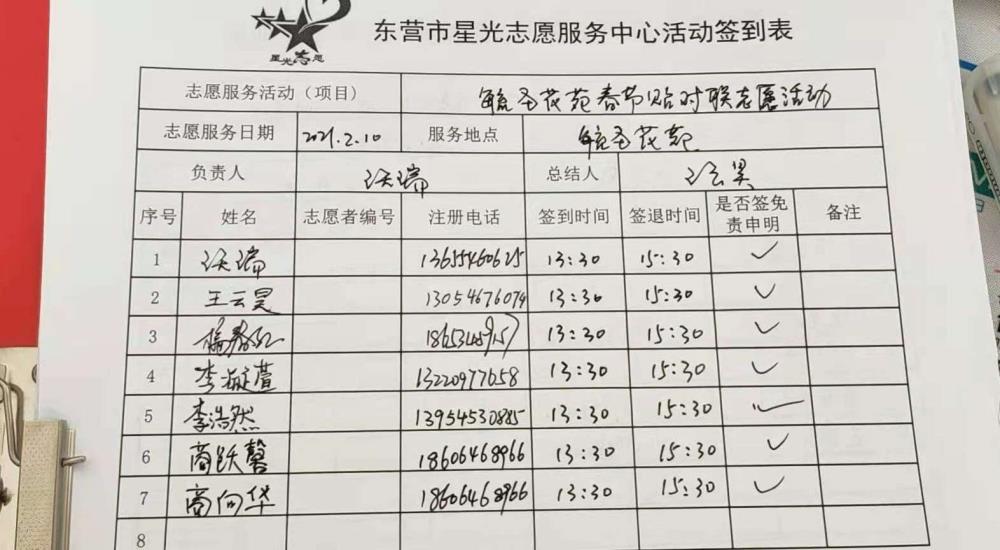 星光志愿
东营市星光志愿服务中心活动签到表
志愿服务活动（项目） 毓圣花苑春节贴对联志愿活动
志愿服务日期 2021.2.10 服务地点 毓圣花苑
负责人 瑞 总结人 昊
序号 姓名 志愿者编号 注册电话 签到时间 签退时间 是否签免责申明 备注
1 瑞 13655460625 13:30 15:30 ✓
2 王云昊 13054676079 13:30 15:30 ✓
3 杨春红 13:30 15:30 ✓
4 李萱 13220977658 13:30 15:30 ✓
5 李浩然 13954530885 13:30 15:30 ✓
6 商跃馨 18606468966 13:30 15:30 ✓
7 商向华 18606468966 13:30 15:30 ✓
8